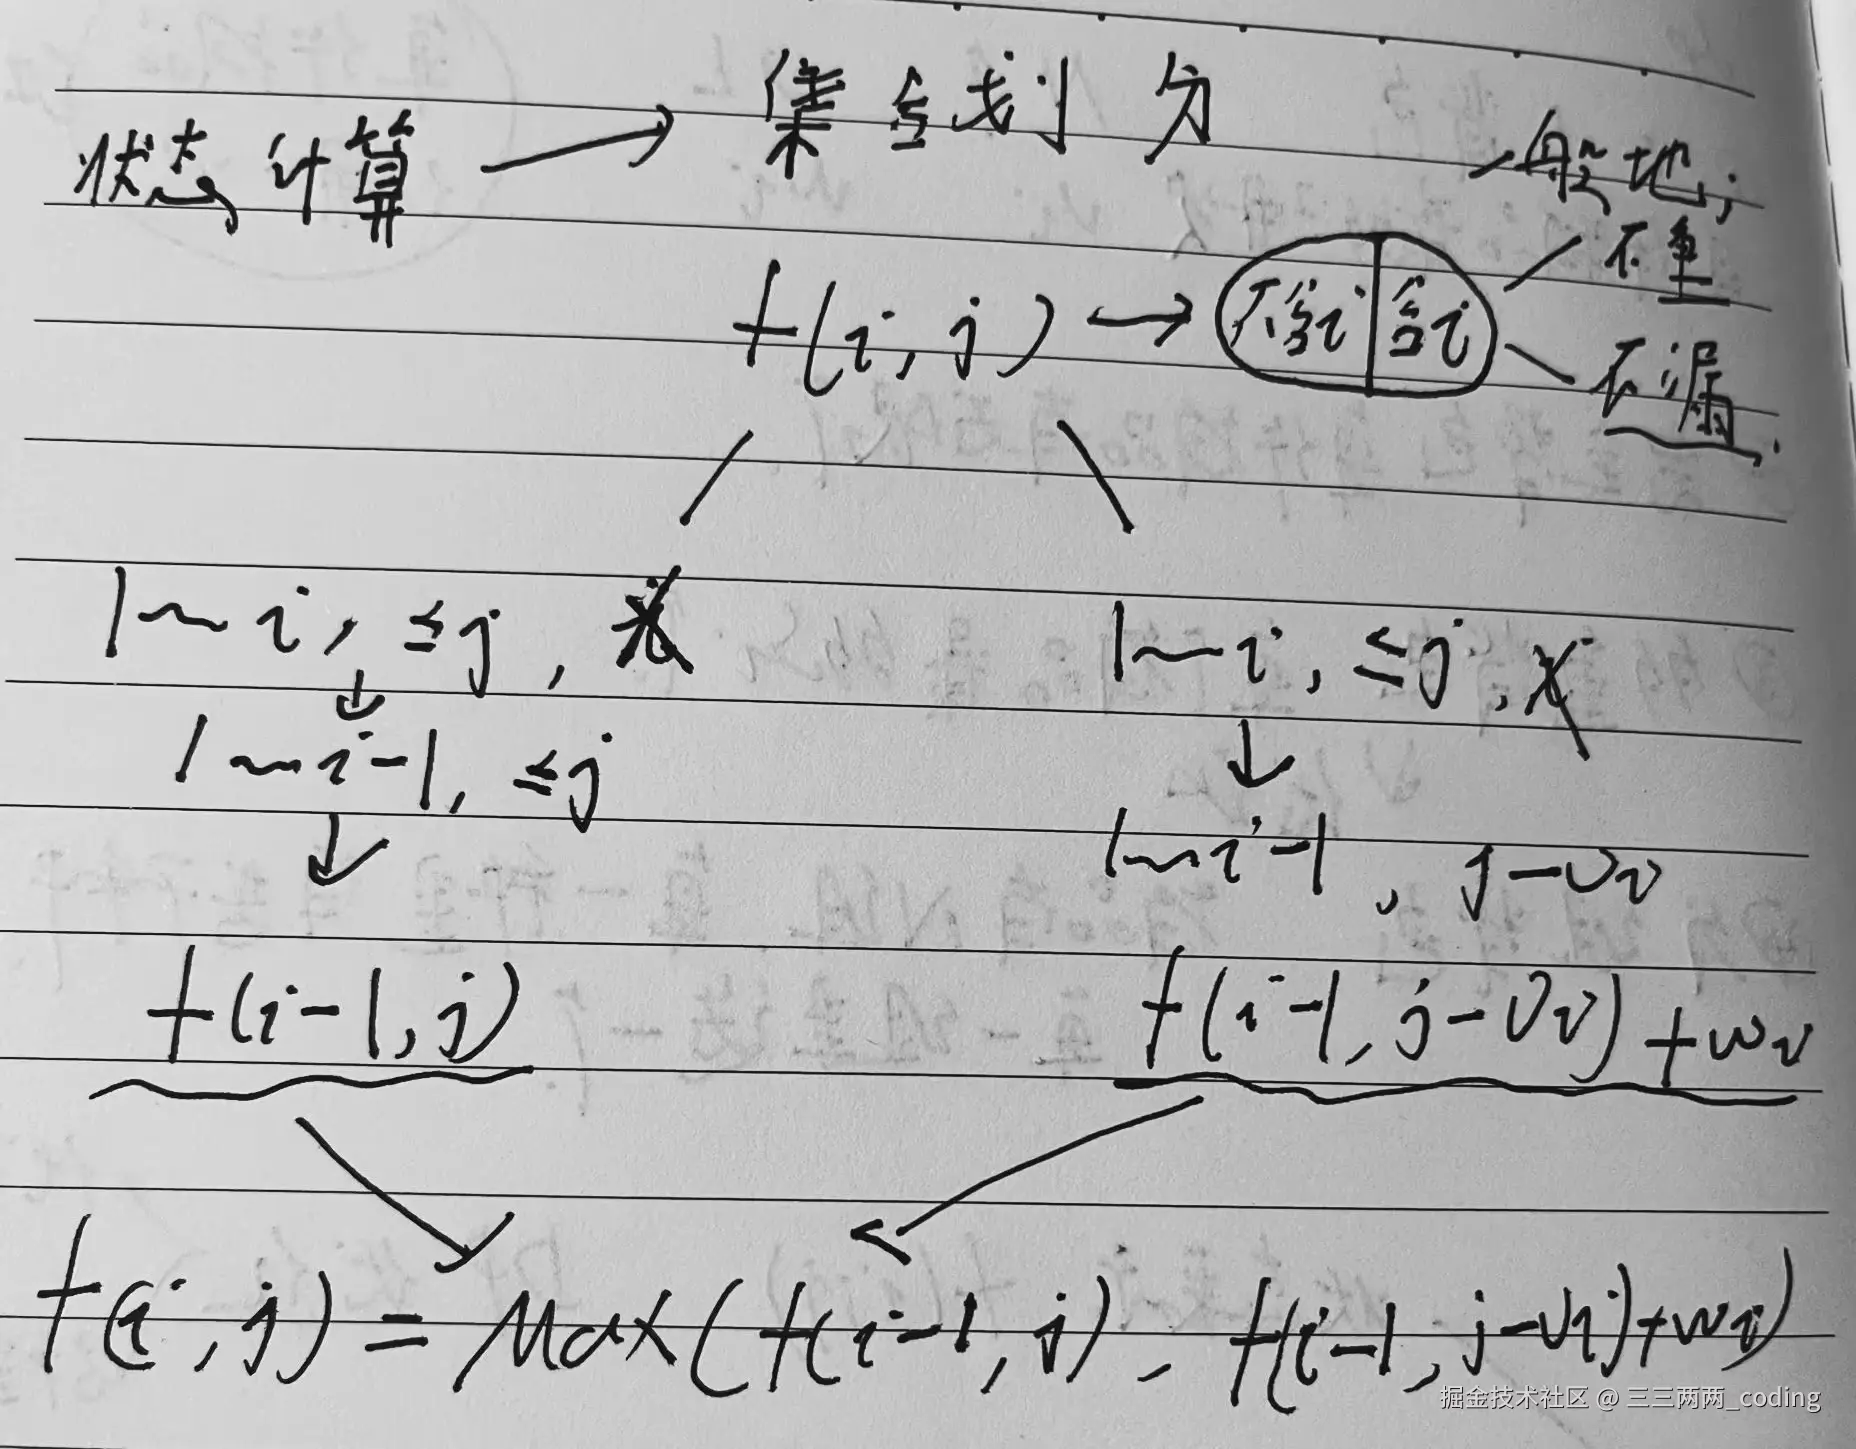 状态计算 → 集合划分
一般地;
不重
f(i, j) → 不含i | 含i
不漏.
1~i, ≤j, i
1~i, ≤j, i
1~i-1, ≤j
1~i-1, j-vi
f(i-1, j)
f(i-1, j-vi)+wi
f(i, j) = Max(f(i-1, j), f(i-1, j-vi)+wi)
掘金技术社区 @ 三三两两_coding